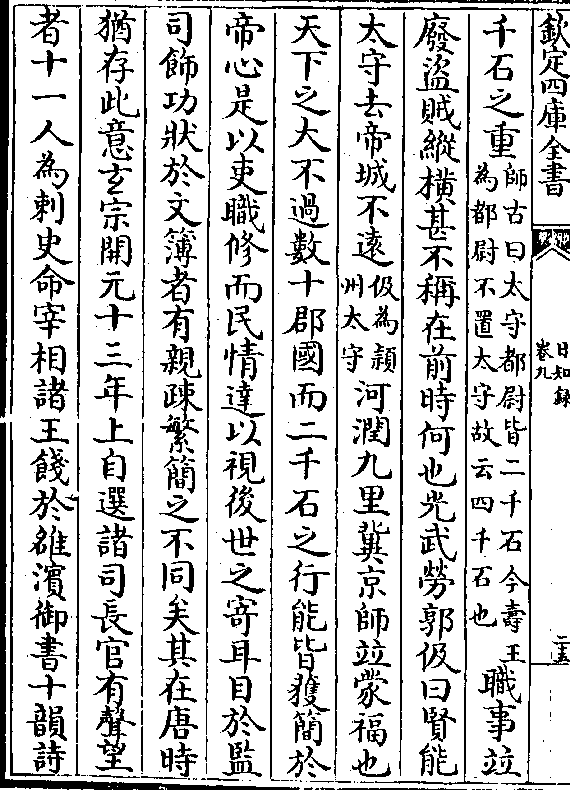 欽定四庫全書
日知錄
卷九
二五
千石之重師古曰太守都尉皆二千石今壽王為都尉不置太守故云四千石也職事竝
廢盜賊縱橫甚不稱在前時何也光武勞郭伋曰賢能
太守去帝城不遠伋為潁州太守河潤九里冀京師竝蒙福也
天下之大不過數十郡國而二千石之行能皆獲簡於
帝心是以吏職修而民情達以視後世之寄耳目於監
司飾功狀於文簿者有親疎繁簡之不同矣其在唐時
猶存此意玄宗開元十三年上自選諸司長官有聲望
者十一人為刺史命宰相諸王餞於雒濱御書十韻詩